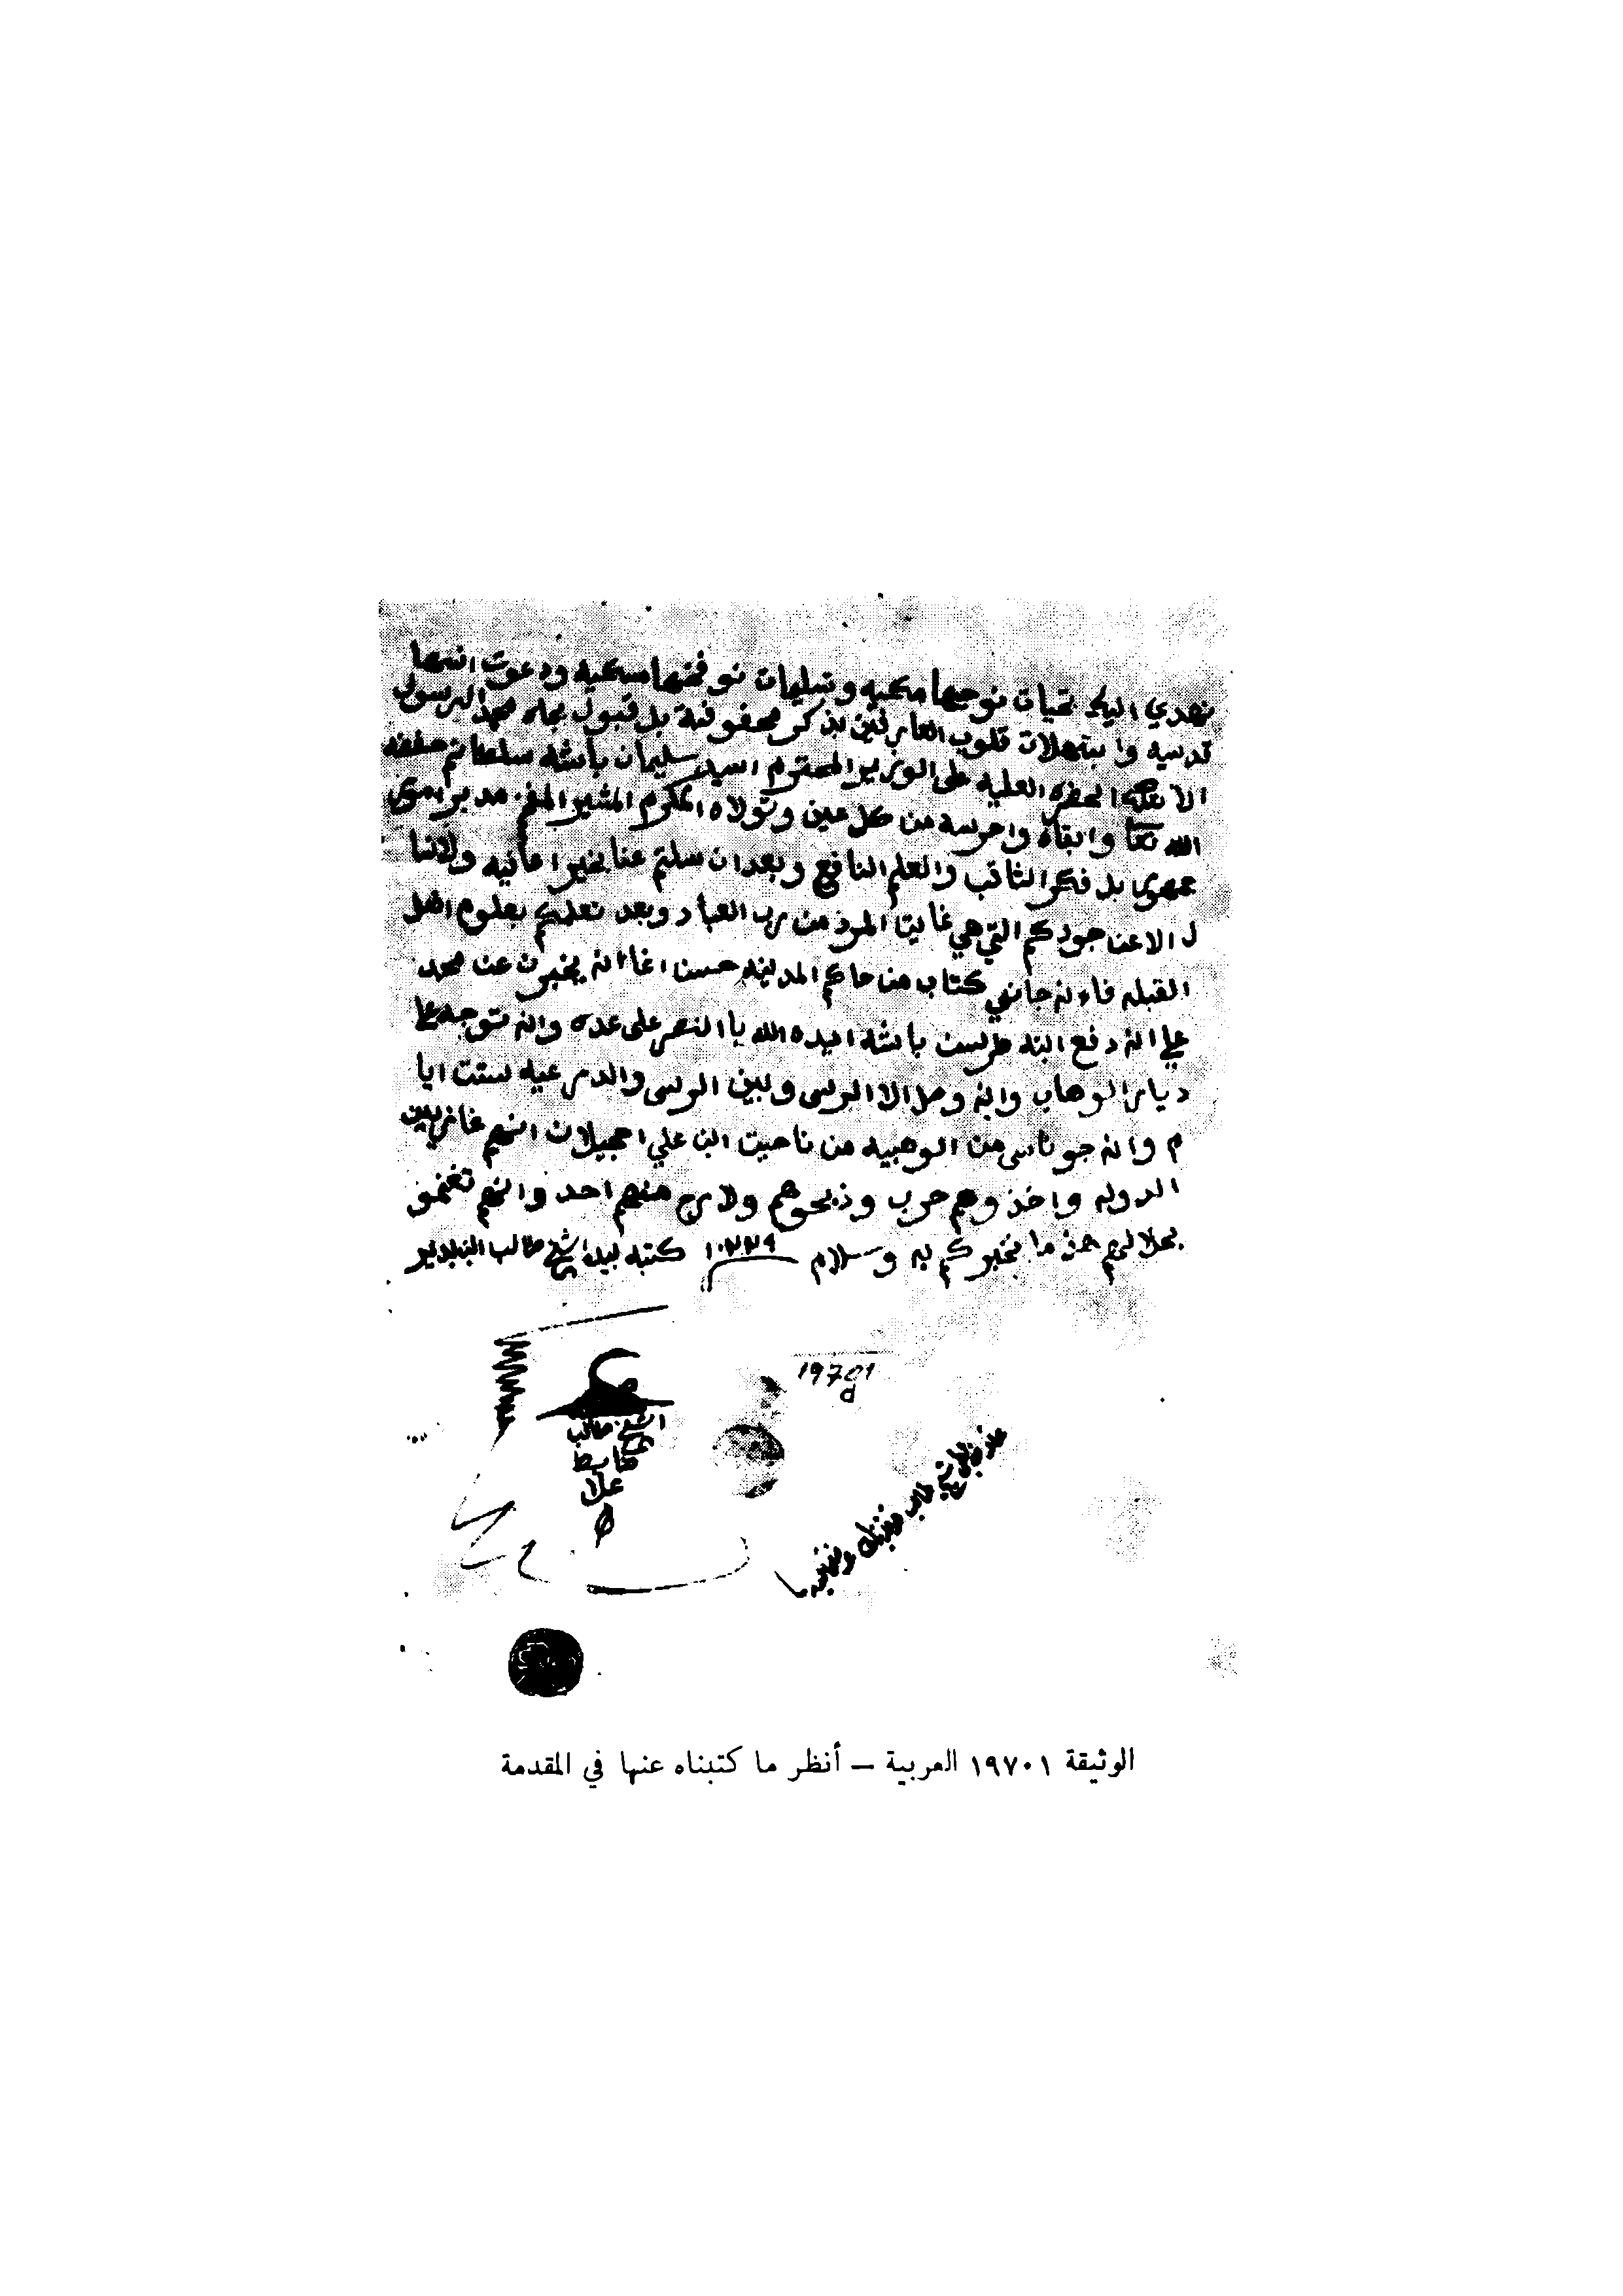 نهدي اليك تحيات نوجيها مكيه وتسليمات نوفحتها مسكيه ودعوت انتها
قدسيه وابتهلات قلوب العارفين بذكر محفوفة بل قبول بجاه محمد الرسول
الا الحضره العليه على الوزير المحترم السيد سليمان باشه سلطانم حفظه
الله تعا وابقاه واحرسه من كل عين وتولاه المكرم المشير المفخم مدبر امور
جمهوري بل فكر الثاقب والعلم النافع وبعد ان سلتم عنا بخير اعافيه ولانسا
ل الا عن جودكم التي هي غايتا المرد من رب العباد وبعد نعلمكم بعلوم اهل
القبله فاءنه جاني كتاب من حاكم المدينه حسن اغا انه يخبرن عن محمد
علي انه دفع ابنه طرسن باشه ايده الله يا النصر على عده وانه متوجه علا
ديار الوهاب وانه وصل الا الرس وبين الرس والدرعيه ستت ايا
م وانه جو ناس من الوهبيه من ناحيت ابن علي احجيلان انهم غازيين
الدوله واخذ وهم حرب وذبحوهم ولا رح منهم احد وانهم تغنمو
بحلالهم هذ ما نخبركم به وسلام ١٢٢٩ كتبه بيده شيخ طالب البديو
19701
d
الشيخ طالب
ضابط
علا
الوثيقة ١٩٧٠١ العربية – أنظر ما كتبناه عنها في المقدمة